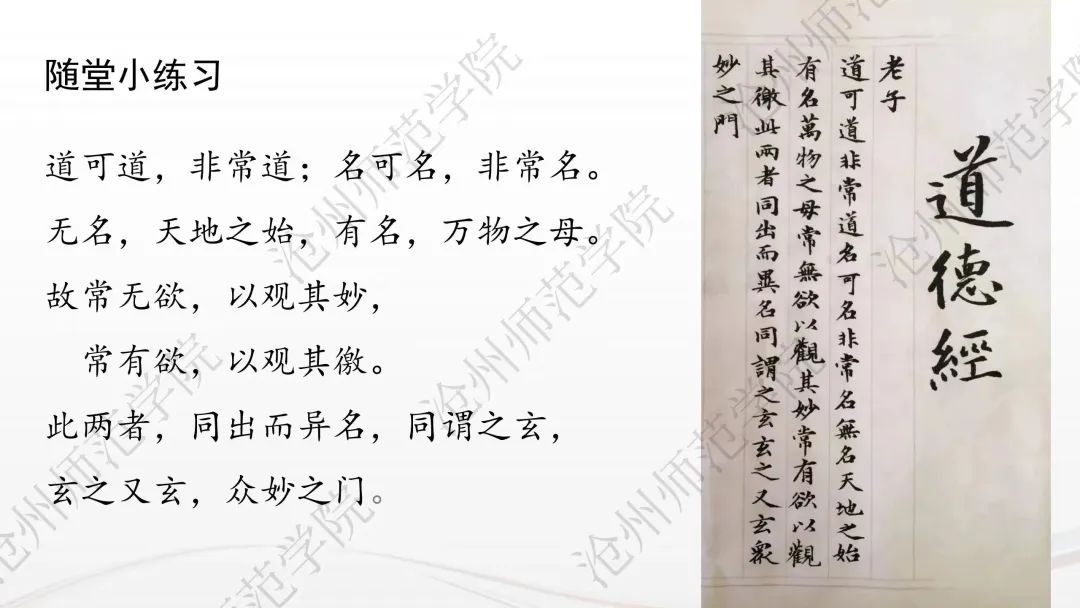 随堂小练习
道可道，非常道；名可名，非常名。
无名，天地之始，有名，万物之母。
故常无欲，以观其妙，
常有欲，以观其徼。
此两者，同出而异名，同谓之玄，
玄之又玄，众妙之门。
道德經
老子
道可道非常道名可名非常名無名天地之始
有名萬物之母常無欲以觀其妙常有欲以觀
其徼此兩者同出而異名同謂之玄玄之又玄眾
妙之門
沧州师范学院
沧州师范学院
沧州师范学院
沧州师范学院
沧州师范学院
沧州师范学院
沧州师范学院
沧州师范学院